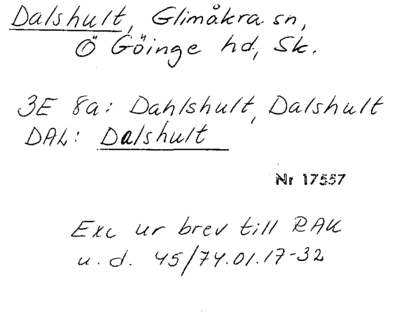 Dalshult, Glimåkra sn,
Ö Göinge hd, Sk.
3E 8a: Dahlshult, Dalshult
DAL: Dalshult
Nr 17557
Exc ur brev till RAK
u. d. 45/74.01.17-32